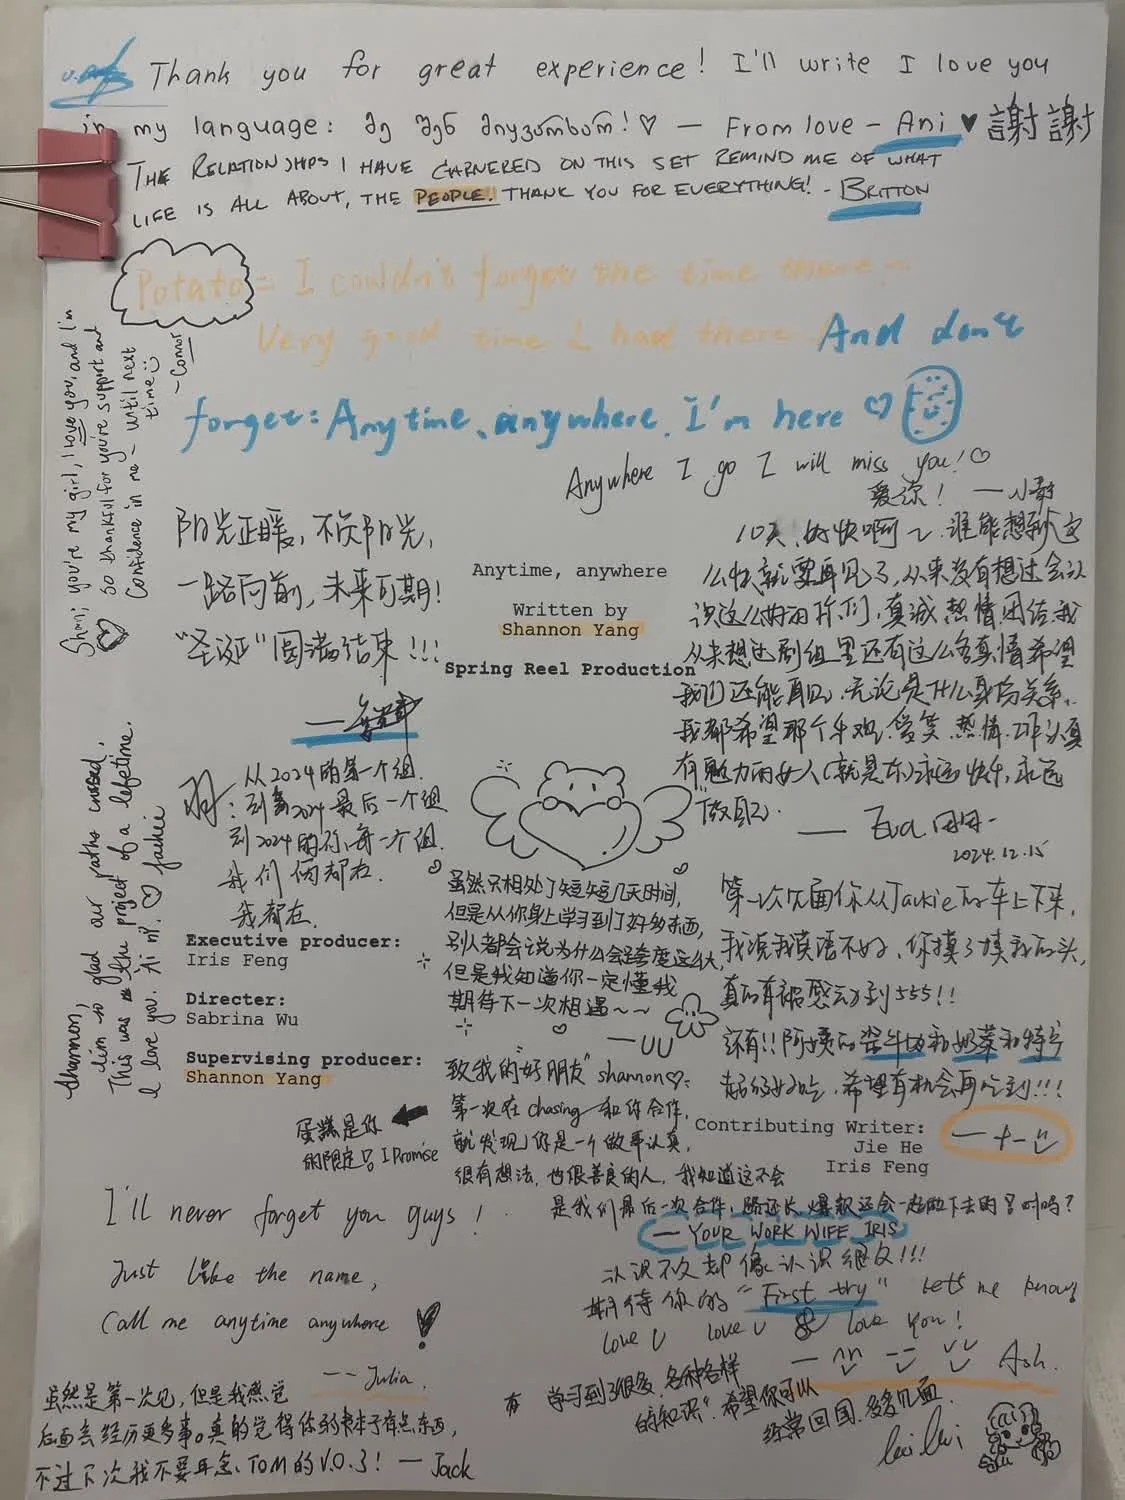 Thank you for great experience! I'll write I love you
in my language: მე შენ მიყვარხარ! ♡ — From love - Ani ♥ 謝謝
THE RELATIONSHIPS I HAVE GARNERED ON THIS SET REMIND ME OF WHAT
LIFE IS ALL ABOUT, THE PEOPLE! THANK YOU FOR EVERYTHING! - BRITTON
Potato = I couldn't forget the time there~
Very good time I had there! And don't
forget: Anytime、anywhere. I'm here ♡
Anywhere I go I will miss you! ♡
爱你! —小
Shani; you're my girl, I love you, and I'm
so thankful for you're support and
Confidence in me ~ until next
time
- Connor
阳光正暖, 不负阳光,
一路向前, 未来可期!
"圣诞"圆满结束!!!
Anytime, anywhere
Written by
Shannon Yang
Spring Reel Production
10天、好快啊~ 谁能想到这
么快就要再见了, 从来没有想过会认
识这么好的你们, 真诚 热情 团结 我
从来想过剧组里还有这么多真情希望
我们还能再见. 无论是什么身份关系.
我都希望那个 爱笑 热情 工作认真
有魅力的女人(就是你)永远快乐, 永远
"做自己.
— Eva 田田一
2024.12.15
羽: 从2024的第一个组.
到2024最后一个组
到2024的 每一个组.
我们俩都在.
我都在.
Shannon,
I'm so glad our paths crossed.
This was the project of a lifetime.
I love you. Ai ni. ♡ Jackie
虽然只相处了短短几天时间,
但是从你身上学习到了好多东西,
别人都会说为什么会跨度这么大,
但是我知道你一定懂我
期待下一次相遇~~
—UU
第一次见面你从Jackie的车上下来,
我说我英语不好、你摸了摸我的头,
真的有被感动到555!!
还有!! 阿姨的 和 和
好吃. 希望有机会再吃到!!!
— 十一
Executive producer:
Iris Feng
Directer:
Sabrina Wu
Supervising producer:
Shannon Yang
致我的"好朋友" shannon♡:
第一次在 chasing 和你合作,
就发现你是一个做事认真,
很有想法, 也很善良的人. 我知道这不会
是我们最后一次合作, 路还长, 爆款还会一起做下去的 对吗?
— YOUR WORK WIFE IRIS
蛋糕是你
的限定只 I Promise
Contributing Writer:
Jie He
Iris Feng
I'll never forget you guys!
Just like the name,
Call me anytime anywhere!
-- Julia.
认识不久却像认识很久!!!
期待你的 "First try" Lets me know
love U love U & love you!
— Ash.
虽然是第一次见, 但是我感觉
后面会经历更多事。真的觉得你的本子有点东西,
不过下次我不要再念 TOM 的 V.O.3! — Jack
学习到了很多、各种各样
的知识". 希望你可以
经常回国, 多多见面.
lui lui